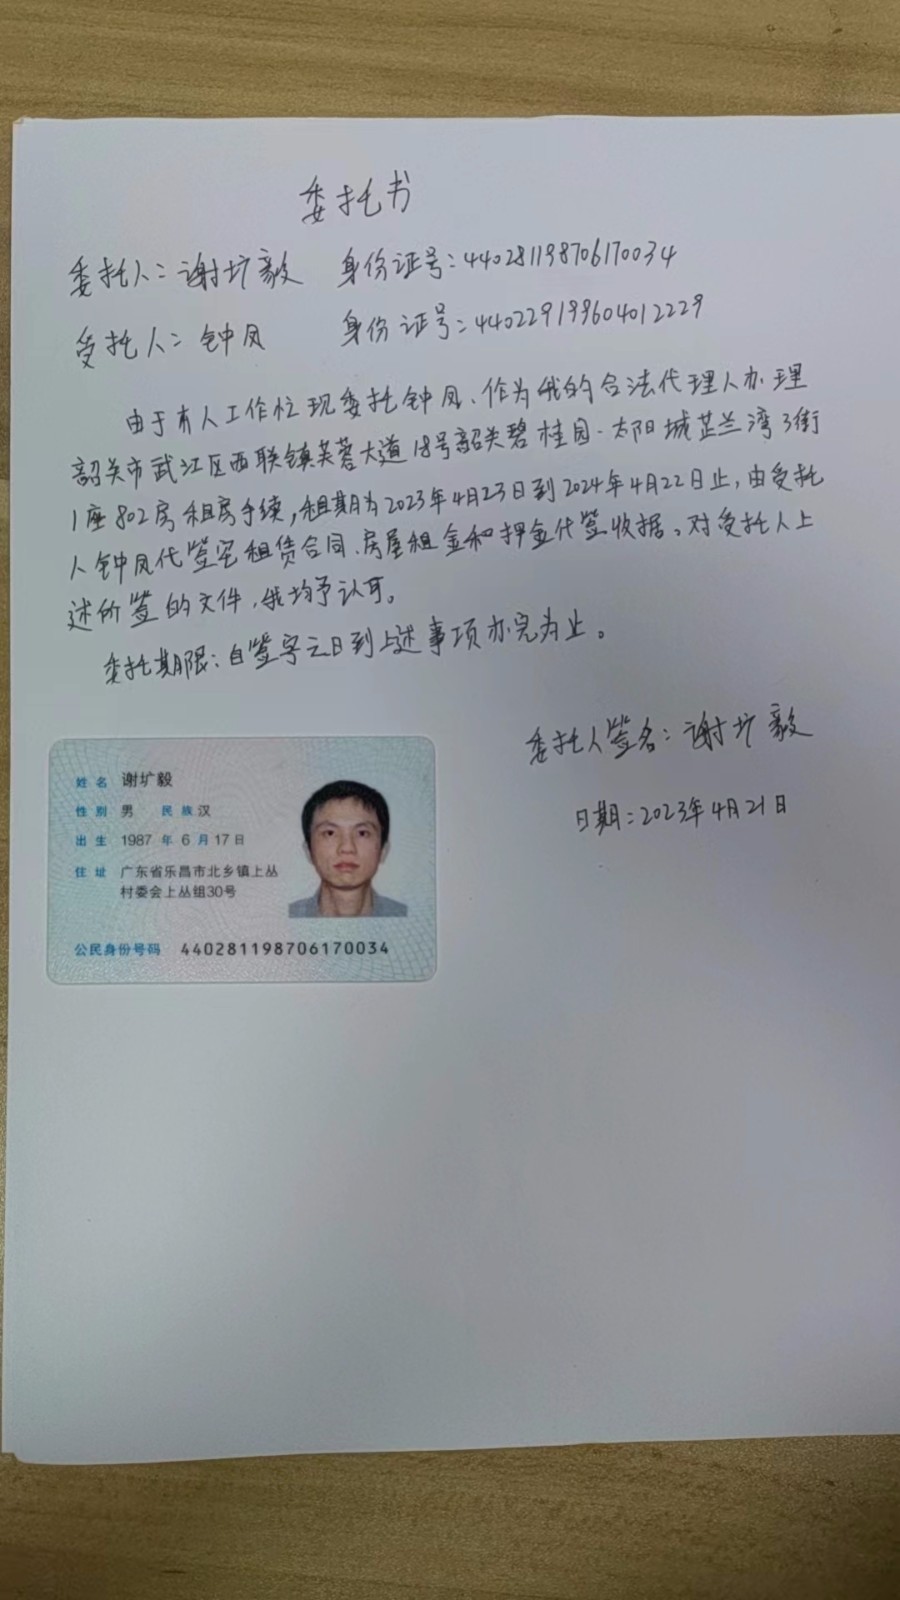 委托书
委托人：谢圹毅 身份证号：440281198706170034
受托人：钟凤 身份证号：440229199604012229
由于本人工作忙现委托钟凤、作为我的合法代理人办理
韶关市武江区西联镇芙蓉大道18号韶关碧桂园·太阳城芷兰湾3街
1座802房租房手续，租期为2023年4月23日到2024年4月22日止，由受托
人钟凤代签定租赁合同、房屋租金和押金代签收据。对受托人上
述所签的文件，我均予认可。
委托期限：自签字之日到上述事项办完为止。
委托人签名：谢圹毅
日期：2023年4月21日
姓名 谢圹毅
性别 男 民族 汉
出生 1987 年 6 月 17 日
住址 广东省乐昌市北乡镇上丛
村委会上丛组30号
公民身份号码 440281198706170034